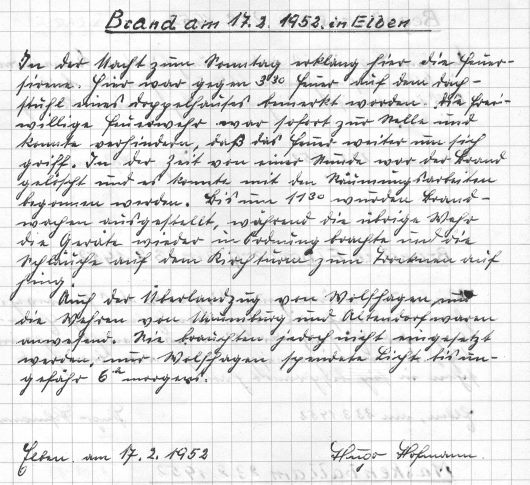 Brand am 17.2.1952 in Elben
In der Nacht zum Sonntag erklang hier die Feuer-
sirene. Hier war gegen 3 30 Feuer auf dem Dach-
stuhl eines Doppelhauses bemerkt worden. Die Frei-
willige Feuerwehr war sofort zur Stelle und
konnte verhindern, daß das Feuer weiter um sich
griff. In der Zeit von einer Stunde war der Brand
gelöscht und es konnte mit den Räumungsarbeiten
begonnen werden. Bis um 11 30 wurden Brand-
wachen ausgestellt, während die übrige Wehr
die Geräte wieder in Ordnung brachte und die
Schläuche auf dem Kirchturm zum Trocknen auf
hing.
Auch der Überlandzug von Wolfhagen und
die Wehren von Naumburg und Altendorf waren
anwesend. Sie brauchten jedoch nicht eingesetzt
werden, nur Wolfhagen spendete Licht bis un-
gefähr 6 morgens.
Elben, am 17.2.1952 Hugo Hofmann.